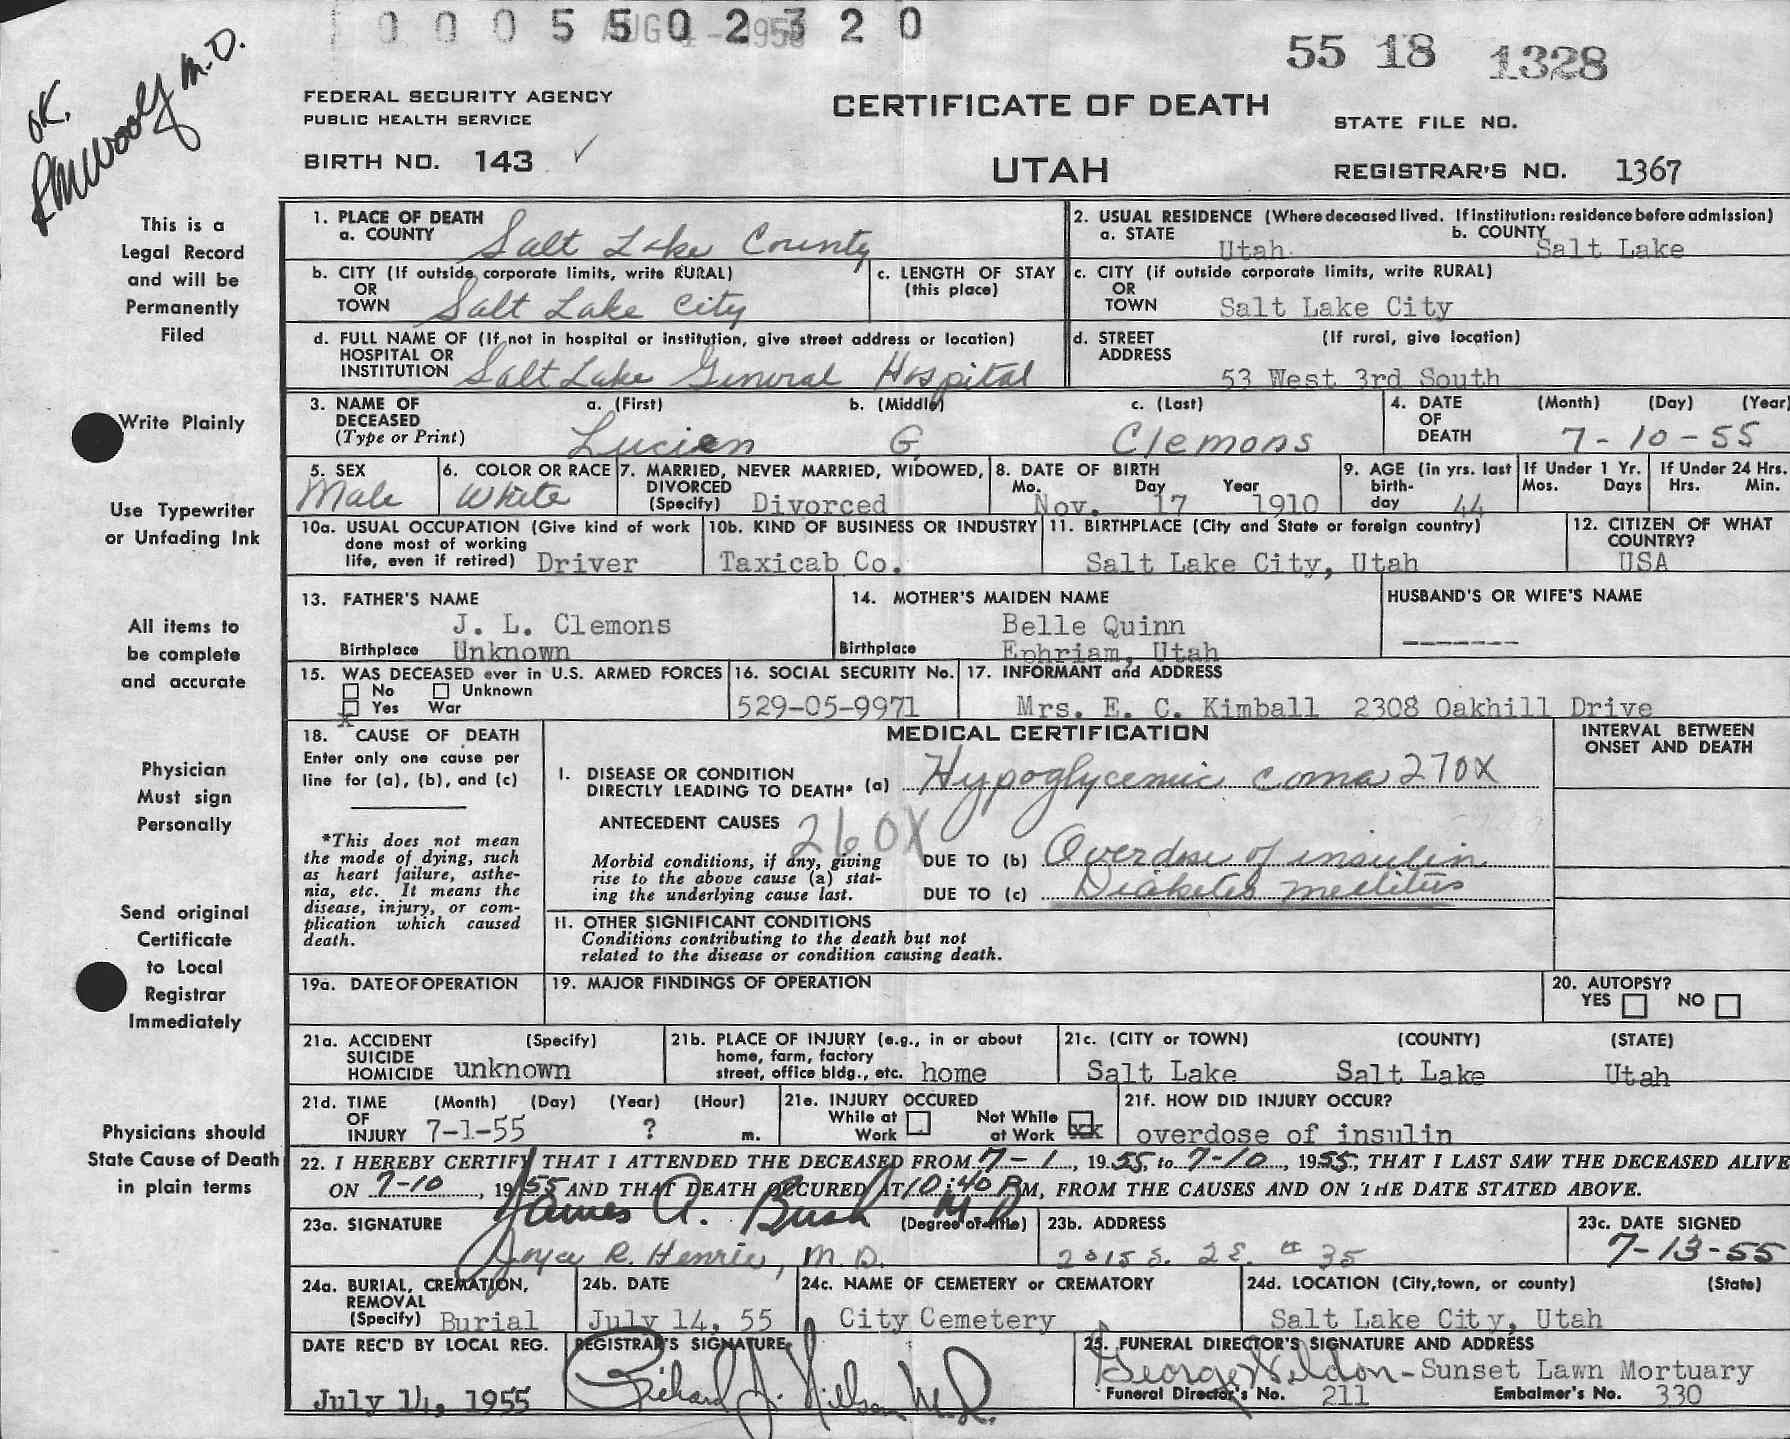 0005502320
AUG 1 - 1955
55 18 1328
OK.
M.D.
FEDERAL SECURITY AGENCY
PUBLIC HEALTH SERVICE
BIRTH NO. 143 ✓
CERTIFICATE OF DEATH
UTAH
STATE FILE NO.
REGISTRAR'S NO. 1367
This is a
Legal Record
and will be
Permanently
Filed
Write Plainly
Use Typewriter
or Unfading Ink
All items to
be complete
and accurate
Physician
Must sign
Personally
Send original
Certificate
to Local
Registrar
Immediately
Physicians should
State Cause of Death
in plain terms
1. PLACE OF DEATH
a. COUNTY Salt Lake County
b. CITY (If outside corporate limits, write RURAL)
OR
TOWN Salt Lake City
c. LENGTH OF STAY
(this place)
d. FULL NAME OF (If not in hospital or institution, give street address or location)
HOSPITAL OR
INSTITUTION Salt Lake General Hospital
2. USUAL RESIDENCE (Where deceased lived. If institution: residence before admission)
a. STATE Utah b. COUNTY Salt Lake
c. CITY (if outside corporate limits, write RURAL)
OR
TOWN Salt Lake City
d. STREET (If rural, give location)
ADDRESS
53 West 3rd South
3. NAME OF a. (First) b. (Middle) c. (Last)
DECEASED
(Type or Print) Lucien G. Clemons
4. DATE (Month) (Day) (Year)
OF
DEATH 7-10-55
5. SEX
Male
6. COLOR OR RACE
White
7. MARRIED, NEVER MARRIED, WIDOWED,
DIVORCED
(Specify) Divorced
8. DATE OF BIRTH
Mo. Day Year
Nov. 17 1910
9. AGE (in yrs. last
birth-
day 44
If Under 1 Yr.
Mos. Days
If Under 24 Hrs.
Hrs. Min.
10a. USUAL OCCUPATION (Give kind of work
done most of working
life, even if retired) Driver
10b. KIND OF BUSINESS OR INDUSTRY
Taxicab Co.
11. BIRTHPLACE (City and State or foreign country)
Salt Lake City, Utah
12. CITIZEN OF WHAT
COUNTRY?
USA
13. FATHER'S NAME
J. L. Clemons
Birthplace Unknown
14. MOTHER'S MAIDEN NAME
Belle Quinn
Birthplace Ephriam, Utah
HUSBAND'S OR WIFE'S NAME
-------
15. WAS DECEASED ever in U.S. ARMED FORCES
No Unknown
Yes War
x
16. SOCIAL SECURITY No.
529-05-9971
17. INFORMANT and ADDRESS
Mrs. E. C. Kimball 2308 Oakhill Drive
18. CAUSE OF DEATH
Enter only one cause per
line for (a), (b), and (c)
*This does not mean
the mode of dying, such
as heart failure, asthe-
nia, etc. It means the
disease, injury, or com-
plication which caused
death.
MEDICAL CERTIFICATION
INTERVAL BETWEEN
ONSET AND DEATH
I. DISEASE OR CONDITION
DIRECTLY LEADING TO DEATH* (a) Hypoglycemic coma 270X
ANTECEDENT CAUSES 260X
Morbid conditions, if any, giving
rise to the above cause (a) stat-
ing the underlying cause last.
DUE TO (b) Overdose of insulin
DUE TO (c) Diabetes mellitus
II. OTHER SIGNIFICANT CONDITIONS
Conditions contributing to the death but not
related to the disease or condition causing death.
19a. DATE OF OPERATION
19. MAJOR FINDINGS OF OPERATION
20. AUTOPSY?
YES NO
21a. ACCIDENT (Specify)
SUICIDE
HOMICIDE unknown
21b. PLACE OF INJURY (e.g., in or about
home, farm, factory
street, office bldg., etc. home
21c. (CITY or TOWN) (COUNTY) (STATE)
Salt Lake Salt Lake Utah
21d. TIME (Month) (Day) (Year) (Hour)
OF
INJURY 7-1-55 ? m.
21e. INJURY OCCURED
While at Work Not While at Work xx
21f. HOW DID INJURY OCCUR?
overdose of insulin
22. I HEREBY CERTIFY THAT I ATTENDED THE DECEASED FROM 7-1, 1955, to 7-10, 1955; THAT I LAST SAW THE DECEASED ALIVE
ON 7-10, 1955 AND THAT DEATH OCCURED AT 10:40 PM, FROM THE CAUSES AND ON THE DATE STATED ABOVE.
23a. SIGNATURE James A. Bush M.D. (Degree or title)
Joyce R. Henrie, M.D.
23b. ADDRESS
23c. DATE SIGNED
7-13-55
24a. BURIAL, CREMATION,
REMOVAL
(Specify) Burial
24b. DATE
July 14, 55
24c. NAME OF CEMETERY or CREMATORY
City Cemetery
24d. LOCATION (City, town, or county) (State)
Salt Lake City, Utah
DATE REC'D BY LOCAL REG.
July 14, 1955
REGISTRAR'S SIGNATURE
Richard J. Nilsen M.D.
25. FUNERAL DIRECTOR'S SIGNATURE AND ADDRESS
George Weldon - Sunset Lawn Mortuary
Funeral Director's No. 211 Embalmer's No. 330